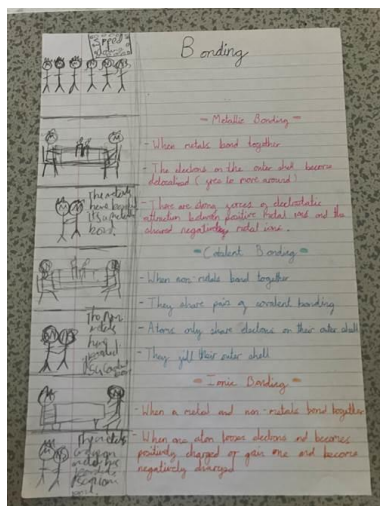 Bonding
Metallic Bonding
- When metals bond together
- The electrons on the outer shell become
delocalised (free to move around)
- There are strong forces of electrostatic
attraction between positive metal ions and the
shared negatively metal ions.
Covalent Bonding
- When non metals bond together
- They share pairs of covalent bonding
- Atoms only share electrons on their outer shell
- They fill their outer shell
Ionic Bonding
- When a metal and non-metals bond together
- When one atom losses electrons and becomes
positively charged or gain one and become
negatively charged
The metals
have
The non
metals
have
bonded
The metals